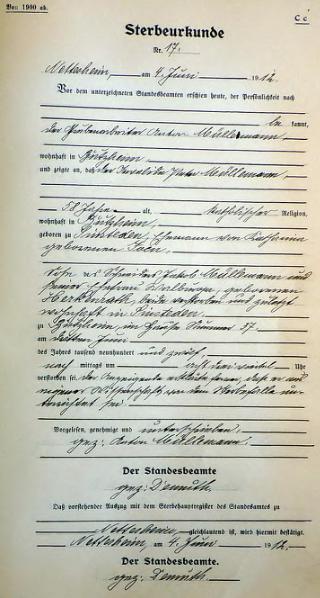 Von 1900 ab.
C c
Sterbeurkunde
Nr. 17.
Nettersheim, am 4. Juni 1912.
Vor dem unterzeichneten Standesbeamten erschien heute, der Persönlichkeit nach
be kannt,
der Anton Müllemann,
wohnhaft in
und zeigte an, daß der Invalide Peter Müllemann,
58 Jahre alt, katholischer Religion,
wohnhaft in
geboren zu Ehemann von Katharina
geborenen
Sohn des Jakob Müllemann und
seiner Ehefrau Walburga, geborenen
Herkenrath, beide verstorben und zuletzt
wohnhaft in
zu in Hause Nummer 37.
am Juni
des Jahres tausend neunhundert und zwölf
nach mittags um Uhr
verstorben sei. Der Anzeigende daß er aus
eigener Wissenschaft von dem Sterbefalle un-
terrichtet sei
Vorgelesen, genehmigt und unterschrieben,
gez. Anton Müllemann.
Der Standesbeamte
gez. Demuth.
Daß vorstehender Auszug mit dem Sterbehauptregister des Standesamtes zu
Nettersheim gleichlautend ist, wird hiermit bestätigt.
Nettersheim, am 4. Juni 1912.
Der Standesbeamte.
gez. Demuth.